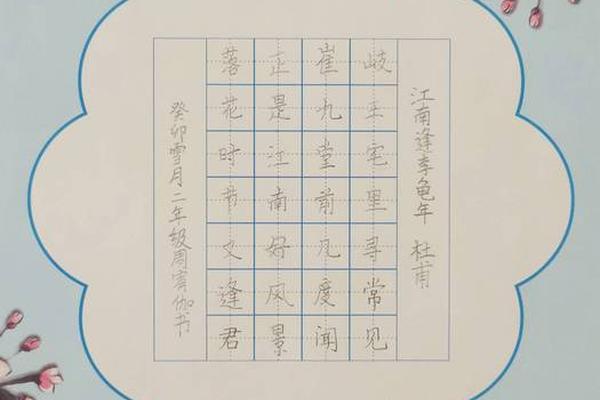 江南逢李龟年 杜甫
岐王宅里寻常见
崔九堂前几度闻
正是江南好风景
落花时节又逢君
癸卯雪月二年级周伽书